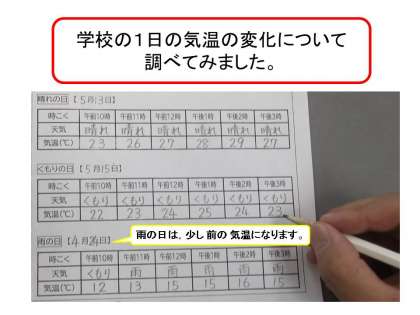 学校の１日の気温の変化について
調べてみました。
晴れの日【5月13日】
時こく 午前10時 午前11時 午前12時 午後1時 午後2時 午後3時
天気 晴れ 晴れ 晴れ 晴れ 晴れ 晴れ
気温(℃) 23 26 27 28 29 27
くもりの日【5月15日】
時こく 午前10時 午前11時 午前12時 午後1時 午後2時 午後3時
天気 くもり くもり くもり くもり くもり くもり
気温(℃) 22 23 24 25 24 23
雨の日【4月24日】
雨の日は、少し前の気温になります。
時こく 午前10時 午前11時 午前12時 午後1時 午後2時 午後3時
天気 くもり 雨 雨 雨 雨 雨
気温(℃) 12 13 15 15 16 15